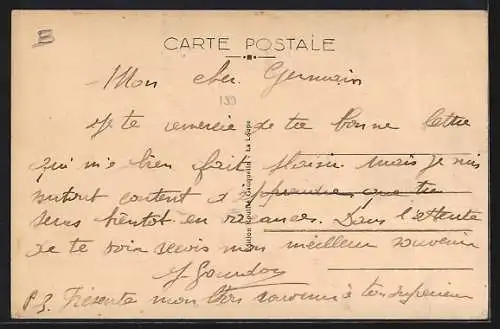 CARTE POSTALE
Mon cher Germain
199
Je te remercie de ta bonne lettre
qui m'a bien fait plaisir mais je suis
surtout content d'apprendre que tu
seras bientôt en vacances. Dans l'attente
de te voir reçois mon meilleur souvenir
J. Gaudon
P.S. Présente mon bon souvenir à ton supérieur
- La Loupe